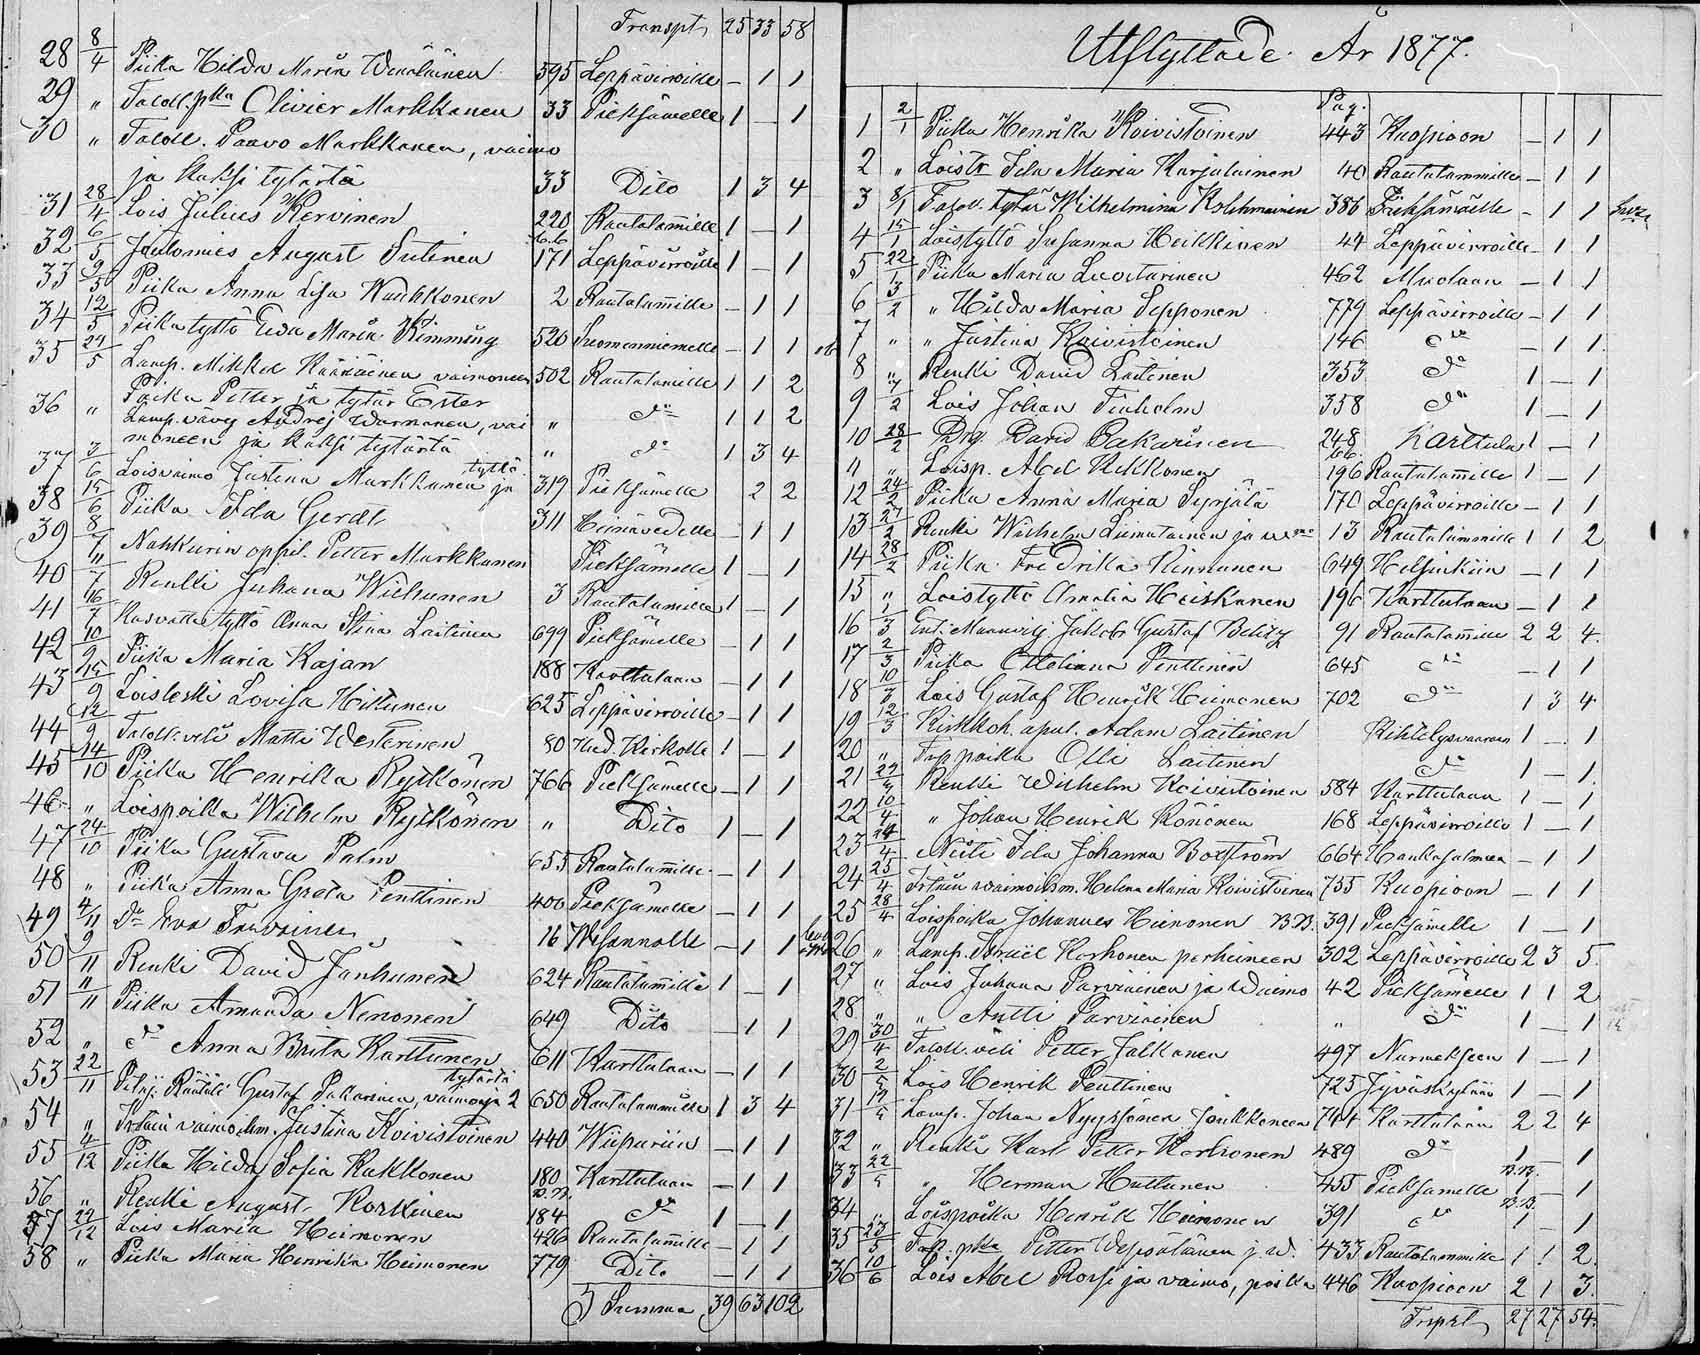 Transpt 25 33 58
28 8/4 Piika Hilda Maria Wänäläinen 595 Leppävirroille – 1 1
29 " Taloll. pka Olivier Markkanen 33 Pieksämelle 1 – 1
30 " Taloll. Paavo Markkanen, vaimo
ja kaksi tytärtä 33 Dito 1 3 4
31 28/4 Lois Julius Kervinen 220 Rautalammille 1 – 1
32 6/5 August Sutinen 171 Leppävirroille 1 – 1
33 9/5 Piika Anna Lisa Wauhkonen 2 Rautalammille – 1 1
34 12/5 Piika tyttö Eeva Maria Kimming 520 Suomenniemelle – 1 1
35 24/5 Lamp. Mikkel Kääriäinen vaimoneen 502 Rautalammille 1 1 2
Poika Petter ja tytär Ester " do 1 1 2
36 " Lamp. vävy Andrej Warmanen, vai
moneen ja kaksi tytärtä " do 1 3 4
37 3/6 Loisvaimo Justina Markkanen ja tyttö 319 Pieksämelle 2 2
38 15/6 Piika Ida Gerdt 311 Heinävedelle – 1 1
39 8/7 Nahkurin oppil. Petter Markkanen Pieksämelle 1 – 1
40 11/7 Renki Juhana Wihunen 3 Rautalammille 1 – 1
41 16/7 Kasvatte tyttö Anna Stina Laitinen 699 Pieksämelle – 1 1
42 10/9 Piika Maria Kajan 188 Karttulaan – 1 1
43 15/9 Loisleski Lovisa Hiltunen 625 Leppävirroille – 1 1
44 12/9 Taloll. veli Matti Westerinen 80 Kirkolle 1 – 1
45 14/10 Piika Henrika Rytkönen 766 Pieksämelle – 1 1
46 " Loispoika Wilhelm Rytkönen " Dito 1 – 1
47 24/10 Piika Gustava Palm 655 Rautalammille – 1 1
48 " Piika Anna Greta Penttinen 400 Pieksämelle – 1 1
49 4/11 Do Eva 16 Wesannolle – 1 1
50 9/11 Renki David Janhunen 624 Rautalammille 1 – 1
51 11/11 Piika Amanda Nenonen 649 Dito – 1 1
52 " do Anna Brita Karttunen 611 Karttulaan – 1 1
53 22/11 Räätäli Gustaf Pakarinen, vaimo ja 2 tytärtä 650 Rautalammille 1 3 4
54 " Irtain vaimoihm. Justina Koivistoinen 440 Wiipuriin – 1 1
55 4/12 Piika Hilda Sofia Kukkonen 180 Karttulaan – 1 1
56 " Renki August Korkinen 184 do 1 – 1
57 22/12 Lois Maria Heimonen 426 Rautalammille – 1 1
58 " Piika Maria Henrika Heimonen 779 Dito – 1 1
Summa 39 63 102
Utflyttade. År 1877.
Pag.
1 2/1 Piika Henrika Koivistoinen 443 Kuopioon – 1 1
2 " Loistr Ida Maria Karjalainen 40 Rautalammille – 1 1
3 8/1 Taloll. tytär Wilhelmina Kolehmainen 386 Pieksämäelle – 1 1
4 15/1 Loistyttö Susanna Heikkinen 44 Leppävirroille – 1 1
5 22/1 Piika Maria Luostarinen 462 Muolaan – 1 1
6 3/2 " Hilda Maria Sepponen 779 Leppävirroille – 1 1
7 " " Justina Koivistoinen 146 do – 1 1
8 " Renki David Laitinen 353 do 1 – 1
9 7/2 Lois Johan Finholm 358 do 1 – 1
10 28/2 Drg. David Pakarinen 248 Karttula 1 – 1
11 " Loisp. Abel Kekkonen 196 Rautalammille 1 – 1
12 24/2 Piika Anna Maria Syrjätä 170 Leppävirroille – 1 1
13 27/2 Renki Wilhelm Liimatainen ja 13 Rautalammille 1 1 2
14 28/2 Piika Fredrika Kinnunen 649 Helsinkiin – 1 1
15 " Loistyttö Amalia Heiskanen 196 Karttulaan – 1 1
16 1/3 Ent. Maanvilj. Jakob Gustaf Belitz 91 Rautalammille 2 2 4
17 2/3 Piika Otteliana Penttinen 645 do – 1 1
18 10/3 Lois Gustaf Henrik Heimonen 702 do 1 3 4
19 12/3 Kirkkoh. apul. Adam Laitinen Kihtelysvaaraan 1 – 1
20 " poika Olli Laitinen do 1 – 1
21 22/3 Renki Wilhelm Koivistoinen 584 Karttulaan 1 – 1
22 10/4 " Johan Henrik Könönen 168 Leppävirroille 1 – 1
23 24/4 Neiti Ida Johanna Boxström 664 Hankasalmen – 1 1
24 25/4 Irtain vaimoihm. Helena Maria Koivistoinen 755 Kuopioon – 1 1
25 28/4 Loispoika Johannes Heimonen B.B. 391 Pieksämelle 1 – 1
26 " Lamp. Israel Korhonen perheineen 302 Leppävirroille 2 3 5
27 " Lois Juhana Parviainen ja Waimo 42 Pieksämelle 1 1 2
28 " " Antti Parviainen " do 1 – 1
29 30/4 Taloll. veli Petter Jalkanen 497 Nurmekseen 1 – 1
30 2/5 Lois Henrik Penttinen 725 Jyväskylään 1 – 1
31 12/5 Lamp. Johan Nyyssönen Joukkoneen 744 Karttulaan 2 2 4
32 " Renki Karl Petter Korhonen 489 do 1 – 1
33 22/5 " Herman Huttunen 455 Pieksämelle B.B. 1 – 1
34 " Loispoika Henrik Heimonen 391 do B.B. 1 – 1
35 23/5 Tal. pka Petter Wepsäläinen j. w. 433 Rautalammille 1 1 2
36 10/6 Lois Abel Rossi ja vaimo, poika 446 Kuopioon 2 1 3
Trspt 27 27 54